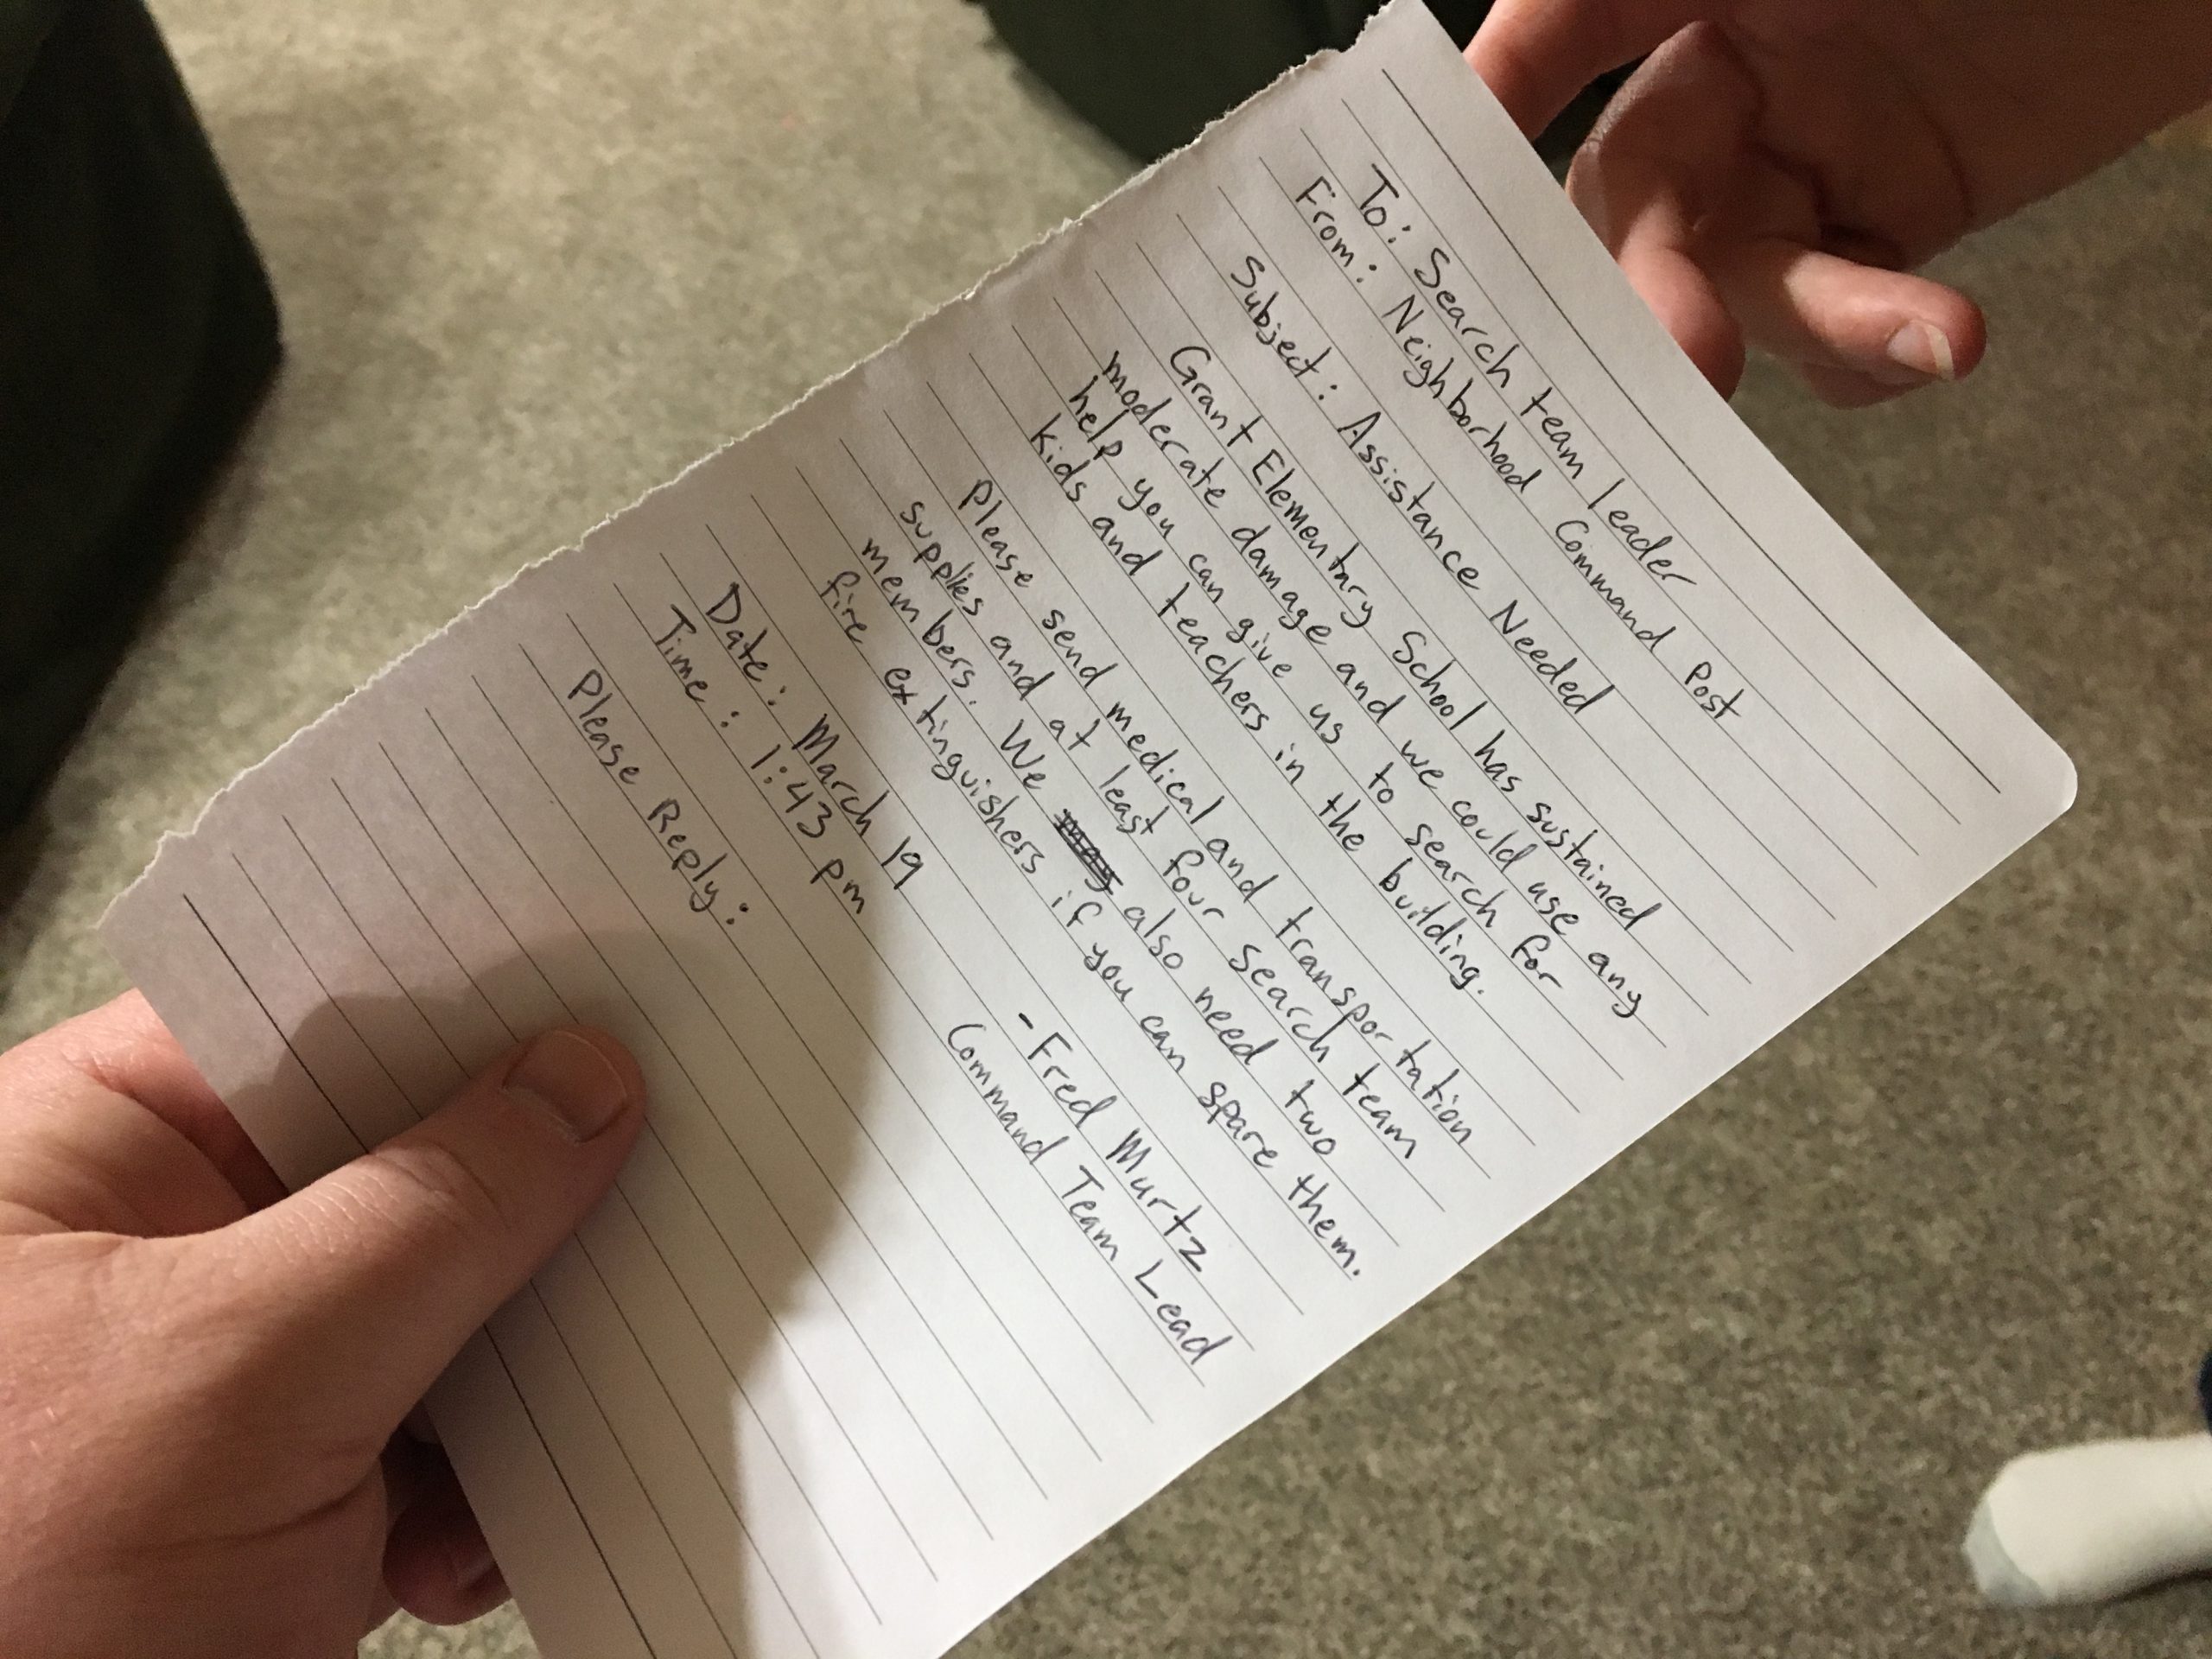 To: Search team leader
From: Neighborhood Command Post
Subject: Assistance Needed
Grant Elementary School has sustained
moderate damage and we could use any
help you can give us to search for
kids and teachers in the building.
Please send medical and transportation
supplies and at least four search team
members. We may also need two
fire extinguishers if you can spare them.
- Fred Murtz
Command Team Lead
Date: March 19
Time: 1:43 pm
Please Reply: